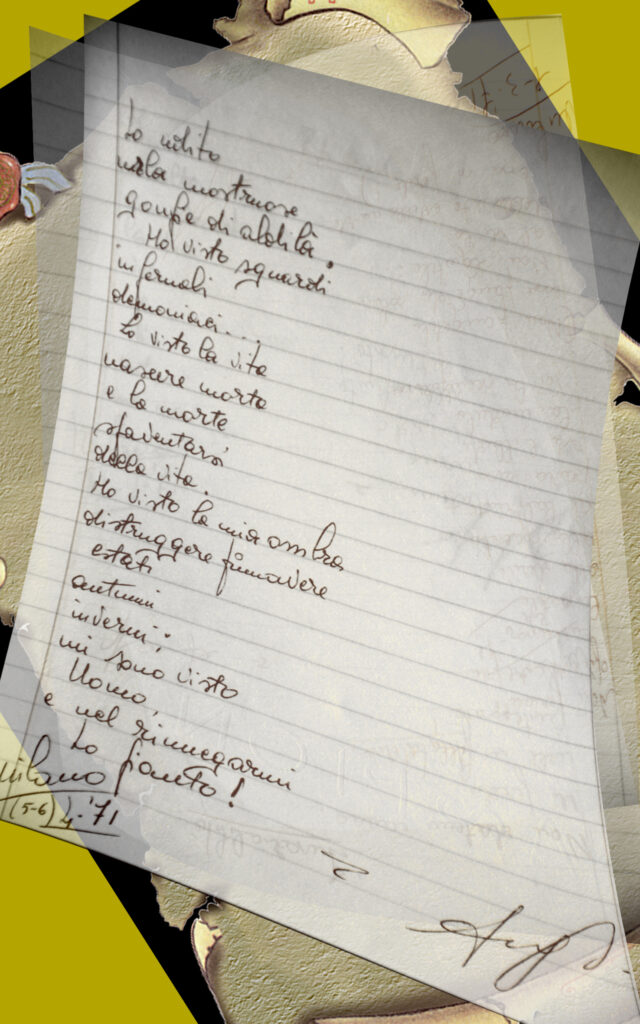 Ho udito
urla mostruose
gonfie di aldilà.
Ho visto sguardi
infernali
demoniaci...
Ho visto la vita
nascere morta
e la morte
spaventarsi
della vita.
Ho visto la mia ombra
distruggere primavere
estati
autunni
inverni;
mi sono visto
Uomo,
e nel rinnegarmi
ho pianto!
Milano
(5-6) 4-'71